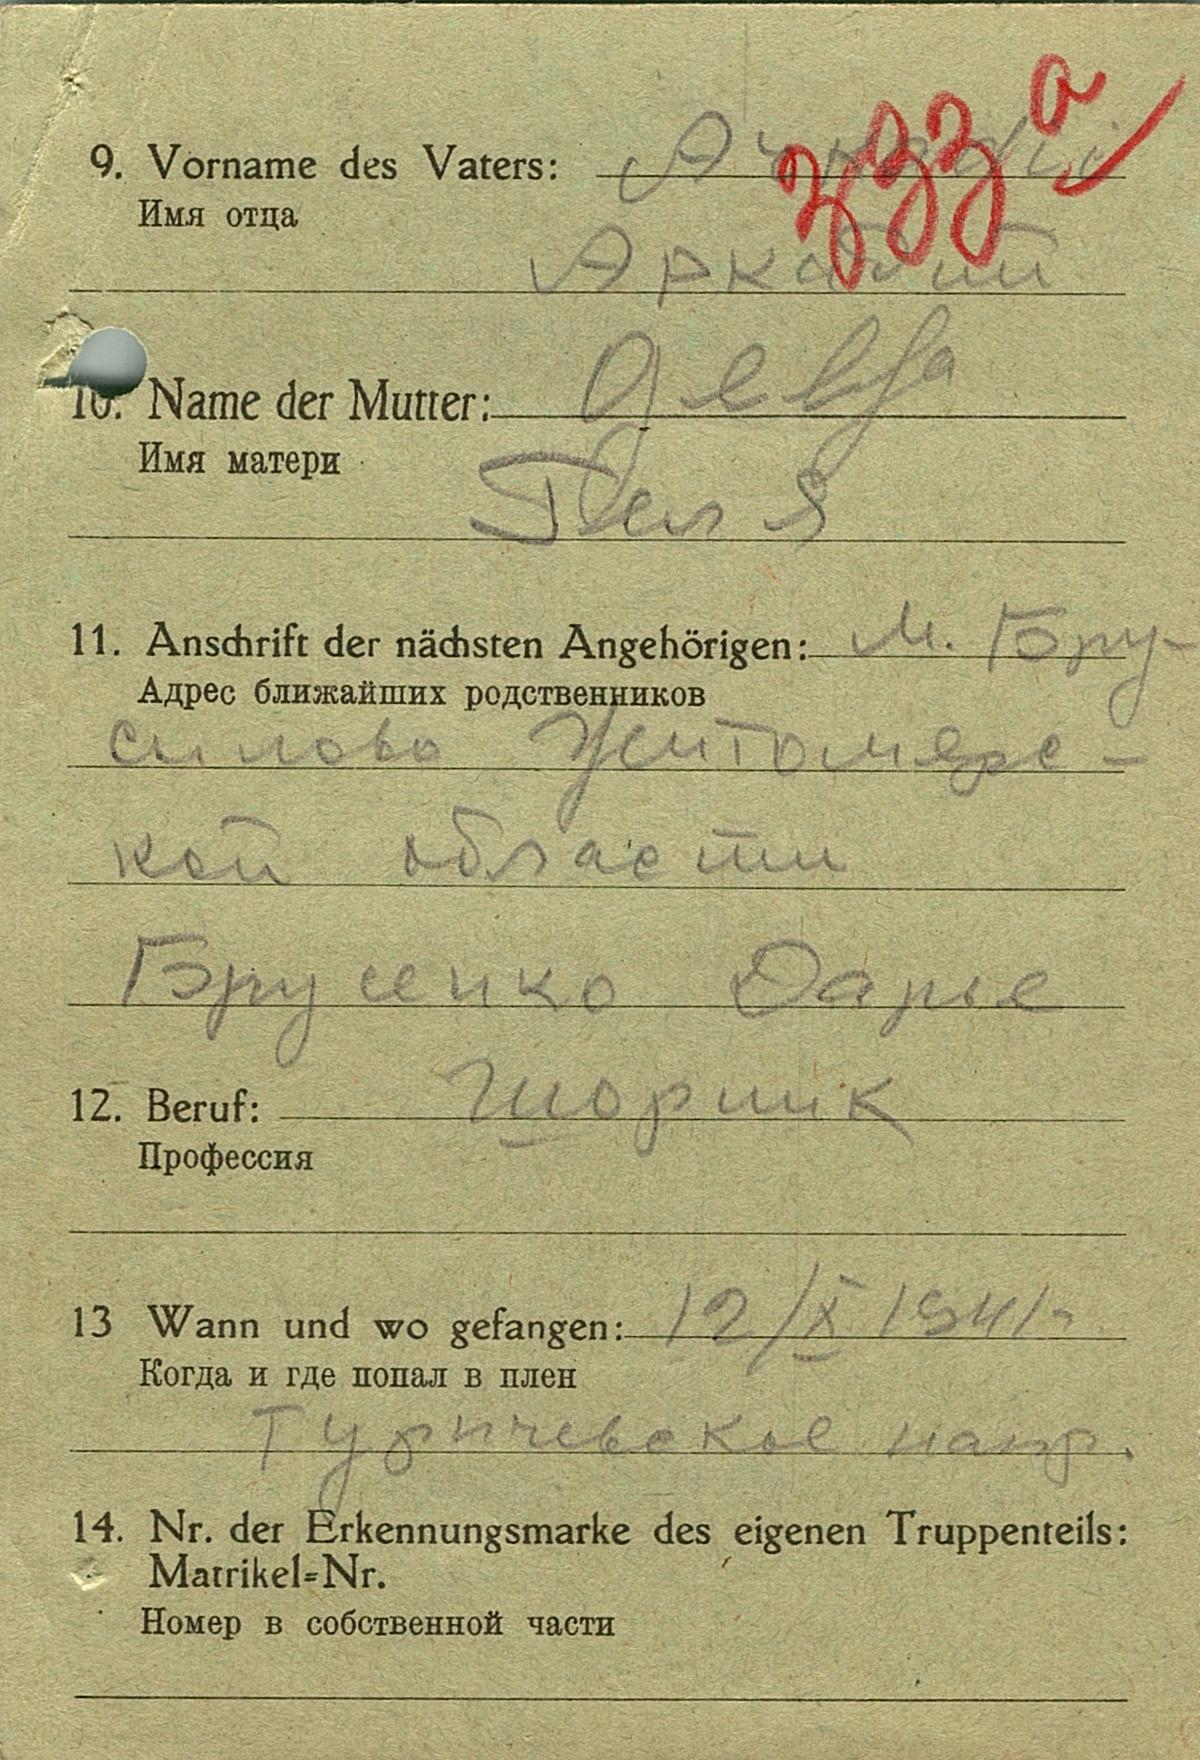 9. Vorname des Vaters:
Имя отца
Аркадий
10. Name der Mutter:
Имя матери
11. Anschrift der nächsten Angehörigen: м. Бру-
Адрес ближайших родственников
силово Житомирс-
кой области
Брусенко Дарье
12. Beruf: Шорник
Профессия
13 Wann und wo gefangen: 12/X 1941 г.
Когда и где попал в плен
напр.
14. Nr. der Erkennungsmarke des eigenen Truppenteils:
Matrikel=Nr.
Номер в собственной части